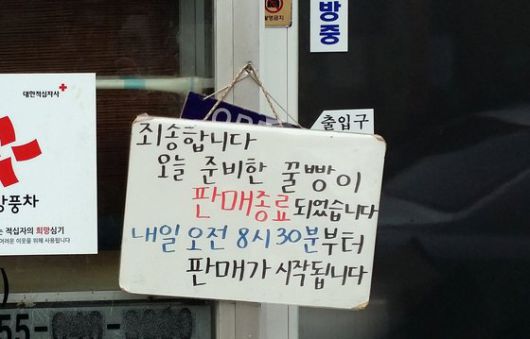 방중
촬영금지
대한적십자사
출입구
죄송합니다
오늘 준비한 꿀빵이
판매종료되었습니다
내일 오전 8시30분부터
판매가 시작됩니다
풍차
는 적십자의 희망심기
어려운 이웃을 위해 사용됩니다
55-